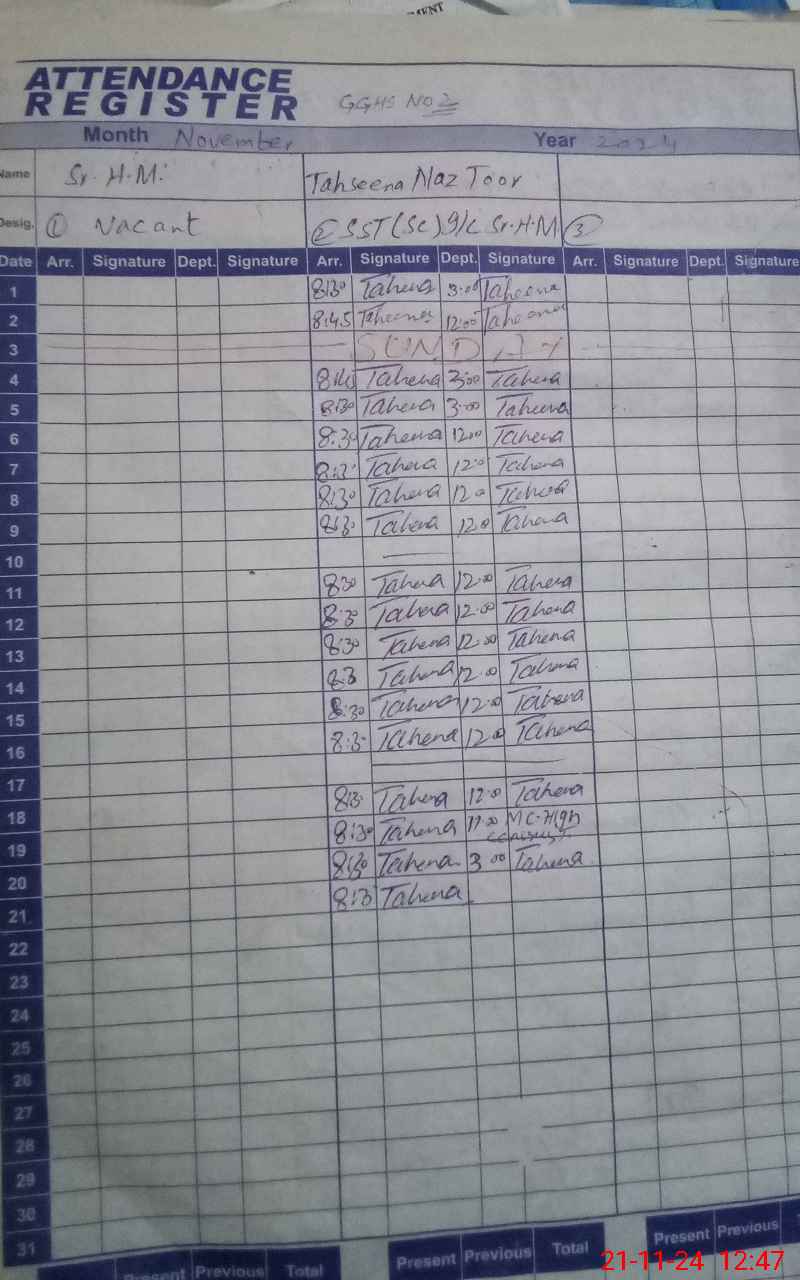 MENT
ATTENDANCE
REGISTER GGHS NO 2
Month November Year 2024
Name Sr. H.M. Tahseena Naz Toor
Desig. ① Vacant ② SST(Sc) I/C Sr.H.M ③
Date Arr. Signature Dept. Signature Arr. Signature Dept. Signature Arr. Signature Dept. Signature
1 8:30 Tahena 3:00 Taheena
2 8:45 Taheena 12:00 Taheena
3 SUNDAY
4 Tahena 3:00 Tahena
5 8:30 Tahena 3:00 Taheena
6 8:30 Tahena 12:00 Tahena
7 8:3 Tahena 12:0 Tahena
8 8:30 Tahena 12:0 Tahena
9 8:3 Tahena 12:0 Tahena
10
11 8:30 Tahena 12:00 Tahena
12 8:30 Tahena 12:00 Tahena
13 8:30 Tahena 12:00 Tahena
14 8:3 Tahena 12:00 Tahena
15 8:30 Tahena 12:00 Tahena
16 8:3 Tahena 12:00 Tahena
17
18 8:3 Tahena 12:0 Tahena
19 8:30 Tahena 11:00 MC-High
20 8:30 Tahena 3:00 Tahena
21 8:3 Tahena
22
23
24
25
26
27
28
29
30
31
Present Previous Total Present Previous Total Present Previous
21-11-24 12:47